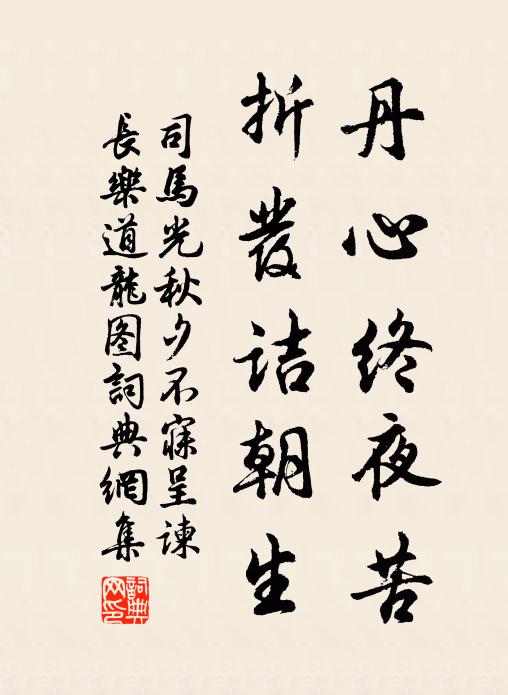 丹心終夜苦
折發詰朝生
司馬光秋夕不寐呈諫
長樂道龍图詞典網集
詞典网印